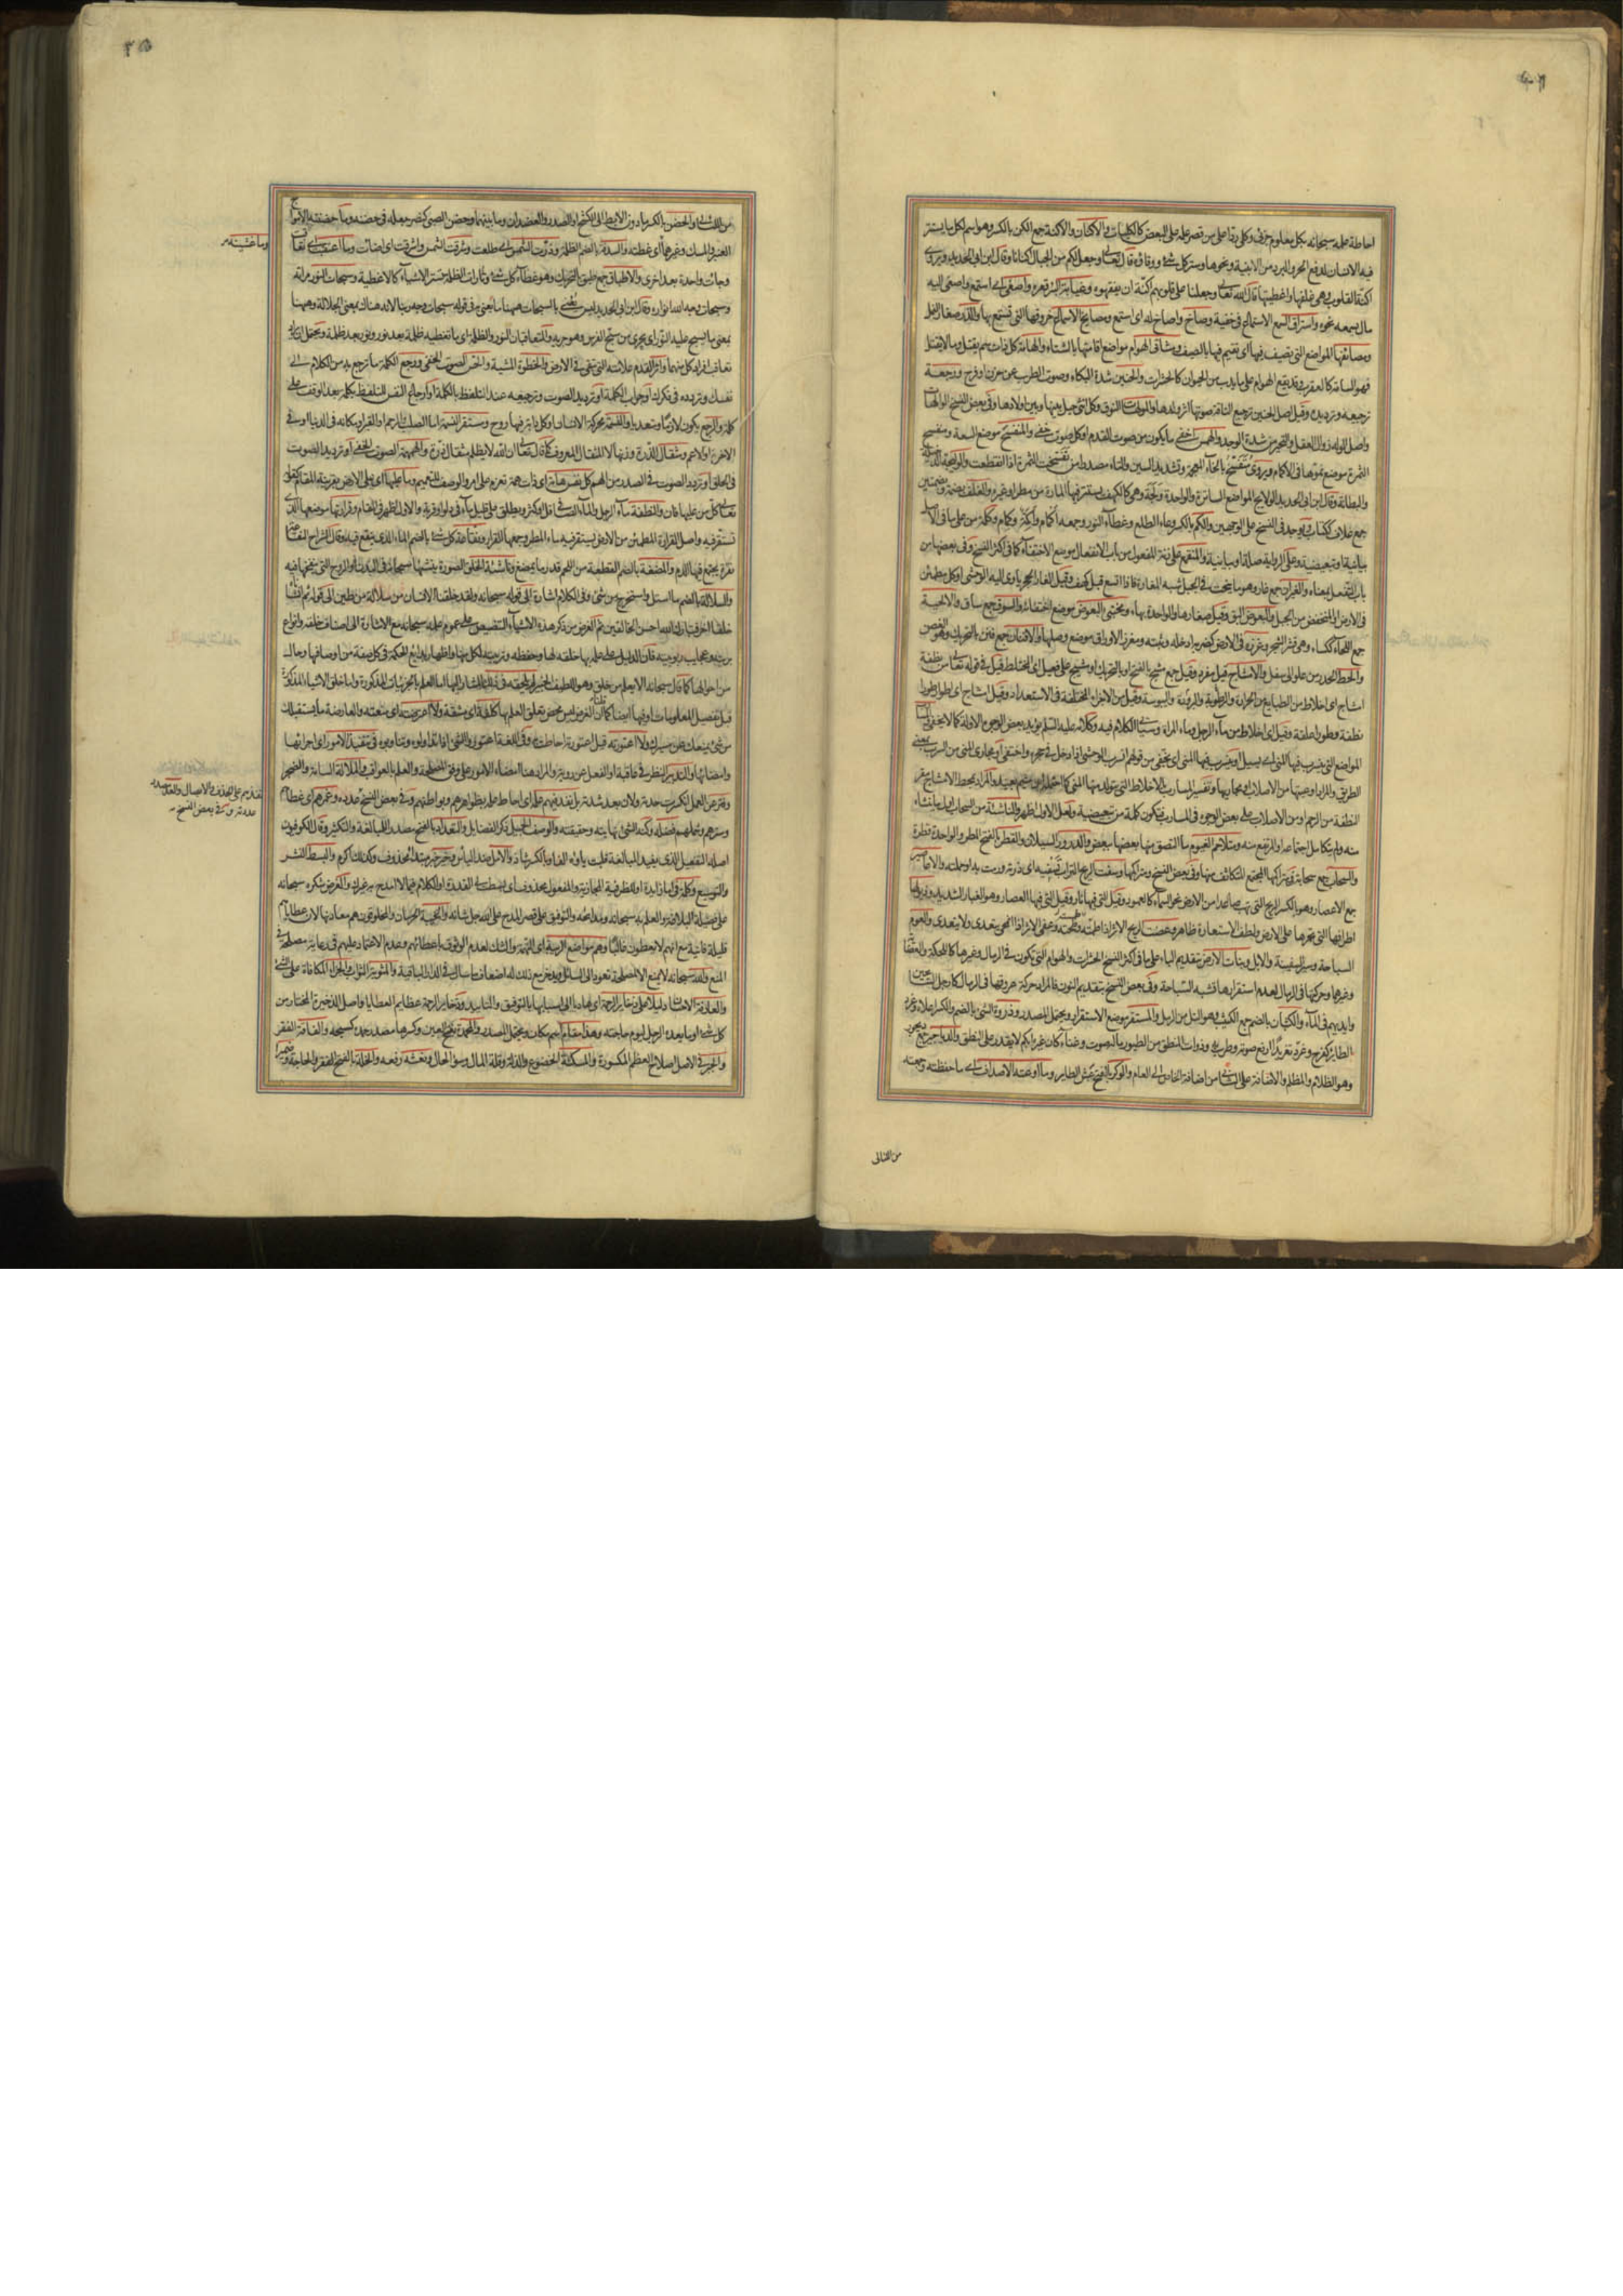 احاطة علمه سبحانه بكل معلوم جزئى وكلى ردا على من قصر علمه على البعض كالكليات والاكنان والاكنة جمع الكن بالكسر وهو اسم لكل ما يستتر
فيه الانسان لدفع الحر والبرد من الابنية ونحوها وستر كل شئ ووقاؤه قال تعالى وجعل لكم من الجبال اكنانا وقال ابن ابى الحديد ويروى
اكنة القلوب وهى غلفها واغطيتها قال الله تعالى وجعلنا على قلوبهم اكنة ان يفقهوه واصغى اى استمع واصغى اليه
مال بسمعه نحوه واستراق السمع الاستماع فى خفية وصاخ واصاخ له اى استمع ومصايخ الاسماع خروقها التى تستمع بها والذر صغار النمل
ومصائفها المواضع التى تصيف فيها اى تقيم فيها بالصيف ومشاتى الهوام مواضع اقامتها بالشتاء والهامة كل ذات سم يقتل وما لا يقتل
فهو السامة كالعقرب وقد يقع الهوام على ما يدب من الحيوان كالحشرات والحنين شدة البكاء وصوت الطرب عن حزن او فرح ورجعه
ترجيعه وترديده وقيل اصل الحنين ترجيع الناقة صوتها اثر ولدها والمولهات النوق وكل انثى حيل بينها وبين اولادها وفى بعض النسخ الوالهات
واصل الوله زوال العقل والتحير من شدة الوجد والهمس اخفى ما يكون من صوت القدم او كل صوت خفى والمنفسح موضع السعة ومنفسح
الثمرة موضع نموها فى الاكمام ويروى متفسخ بالخاء المعجمة وتشديد السين والتاء مصدرا من تفسخت الثمرة اذا انقطعت والوليجة الدخيلة
والبطانة وقال ابن ابى الحديد الولايج المواضع الساترة والواحدة ولجة وهى كالكهف يستتر فيها المارة من مطر او غيره والغلف بضمة وبضمتين
جمع غلاف ككتاب ويوجد فى النسخ على الوجهين والكم بالكسر وعاء الطلع وغطاء النور وجمعه اكمام واكمة وكمام وكلمة من على ما فى الاصل
بيانية او تبعيضية وعلى الرواية صلة او بيانية والمنقمع على زنة المفعول من باب الانفعال موضع الاختفاء كما فى اكثر النسخ وفى بعضها من
باب التفعل بمعناه والغيران جمع غار وهو ما ينحت فى الجبل شبه المغارة فاذا اتسع قيل كهف وقيل الغار الجحر ياوى اليه الوحشى او كل مطمئن
فى الارض او المنخفض من الجبل والبعوض البق وقيل صغارها والواحدة بهاء ومختبى البعوض موضع اختفائه والسوق جمع ساق والالحية
جمع اللحاء ككساء وهى قشر الشجر وغرزه فى الارض كضربه ادخله وثبته ومغرز الاوراق موضع وصلها والافنان جمع فنن بالتحريك وهو الغصن
والحط الحدر من علو الى سفل والامشاج قيل مفرد وقيل جمع مشج بالفتح او بالتحريك او مشيج على فعيل اى المختلط قيل فى قوله تعالى من نطفة
امشاج اى اخلاط من الطبايع من الحرارة والرطوبة والبرودة واليبوسة وقيل من الاجزاء المختلفة فى الاستعداد وقيل امشاج اى اطوار طورا
نطفة وطورا علقة وقيل اى اخلاط من ماء الرجل وماء المراة وسياتى الكلام فيه وكلامه عليه السلم يؤيد بعض الوجوه الاولة كما لا يخفى
المواضع التى يتسرب فيها المنى اى يسيل او يتسرب فيها المنى اى يختفى من قولهم انسرب الوحشى اذا دخل فى جحره واختفى او مجارى المنى من السرب بمعنى
الطريق والمراد اوعيتها من الاصلاب او مجاريها وتفسير المسارب بالاخلاط التى يتولد منها المنى كما احتمله ابن ميثم بعيد والمراد بمحط الامشاج مقر
النطفة من الرحم او من الاصلاب على بعض الوجوه فى المسارب فتكون كلمة من تبعيضية ولعل الاول اظهر والناشئة من السحاب اول ما ينشاء
منه ولم يتكامل اجتماعه او المرتفع منه ومتلاحم الغيوم ما التصق منها بعضها ببعض والدرور السيلان والقطر بالفتح المطر والواحدة قطرة
والسحاب جمع سحابة ومتراكمها المجتمع المتكاثف منها وفى بعض النسخ ومتراكبها وسفت الريح التراب تسفيه اى ذرته ورمت به او حملته والاعاصير
جمع الاعصار وهو بالكسر الريح التى تهب صاعدا من الارض نحو السماء كالعمود وقيل التى فيها نار وقيل التى فيها العصار وهو الغبار الشديد وذيولها
اطرافها التى تجرها على الارض ولطف الاستعارة ظاهر وعفت الريح الاثر اذا طمسته ومحته وعفى الاثر اذا انمحى يتعدى ولا يتعدى والعوم
السباحة وسير السفينة والابل وبنات الارض بتقديم الباء على ما فى اكثر النسخ الحشرات والهوام التى تكون فى الرمال وغيرها كاللحكة والعظاءة
وغيرها وحركتها فى الرمال لعدم استقرارها تشبه السباحة وفى بعض النسخ بتقديم النون فالمراد حركة عروقها فى الرمال كارجل السابحين
وايديهم فى الماء والكثبان بالضم جمع الكثيب وهو التل من الرمل والمستقر موضع الاستقرار ويحتمل المصدر وذروة الشئ بالضم والكسر اعلاه وغرد
الطاير كفرح وغرد تغريدا رفع صوته وطرب به وذوات المنطق من الطيور ما له صوت وغناء كان غيرها بكم لا يقدر على المنطق والدياجير جمع ديجور
وهو الظلام والمظلم والاضافة على الثانى من اضافة الخاص الى العام والوكر بالفتح عش الطاير وما اوعته الاصداف اى ما حفظته وجمعته
من اللئالى
من اللئالى والحضن بالكسر ما دون الابط الى الكشح او الصدر والعضدان وما بينهما وحضن الصبى كنصر جعله فى حضنه وما حضنته الامواج
العنبر والمسك وغيرهما اى غطته والسدفة بالضم الظلمة وذرت الشمس اى طلعت وشرقت الشمس واشرقت اى اضائت وما اعتقب اى تعاقب
وجائت واحدة بعد اخرى والاطباق جمع طبق بالتحريك وهو غطاء كل شئ وتارات الظلمة تستر الاشياء كالاغطية وسبحات النور مراته
وسبحات وجه الله انواره وقال ابن ابى الحديد ليس يعنى بالسبحات ههنا ما يعنى به فى قوله سبحات وجه ربنا لانه هناك بمعنى الجلالة وههنا
بمعنى ما يسبح عليه النور اى يجرى من سبح الفرس وهو جريه والمتعاقبان النور والظلمة اى ما تغطيه ظلمة بعد نور ونور بعد ظلمة ويحتمل ان يراد
تعاقب افراد كل منهما واثر القدم علامته التى تبقى فى الارض والخطوة المشية والحس الصوت الخفى ورجع الكلمة ما ترجع به من الكلام الى
نفسك وتردده فى فكرك او جواب الكلمة او ترديد الصوت وترجيعه عند التلفظ بالكلمة او ارجاع النفس للتلفظ بكلمة بعد الوقف على
كلمة والرجع يكون لازما ومتعديا والنسمة محركة الانسان او كل دابة فيها روح ومستقر النسمة اما الصلب او الرحم او القبر او مكانه فى الدنيا او فى
الاخرة او الاعم ومثقال الذرة وزنها لا المثقال المعروف كما قال تعالى ان الله لا يظلم مثقال ذرة والهمهمة الصوت الخفى او ترديد الصوت
فى الحلق او تردد الصوت فى الصدر من الهم كل نفس هامة اى ذات همة تعزم على امر والوصف للتعميم وما عليها اى على الارض بقرينة المقام كقوله
تعالى كل من عليها فان والنطفة ماء الرجل والماء الصافى قل او كثر ويطلق على قليل ماء فى دلو او قربة والاول اظهر فى المقام وقرارتها موضعها الذى
تستقر فيه واصل القرارة المطمئن من الارض يستقر فيه ماء المطر وجمعها القرار ونقاعة كل شئ بالضم الماء الذى ينقع فيه وقال الشراح النقاعة
نقرة يجتمع فيها الدم والمضغة بالضم القطعة من اللحم قدر ما يمضغ وناشئة الخلق الصورة ينشئها سبحانه فى البدن او الروح التى ينفخها فيه
والسلالة بالضم ما استل واستخرج من شئ وفى الكلام اشارة الى قوله سبحانه ولقد خلقنا الانسان من سلالة من طين الى قوله ثم انشأناه
خلقا اخر فتبارك الله احسن الخالقين ثم الغرض من ذكر هذه الاشياء التنصيص على عموم علمه سبحانه مع الاشارة الى اصناف خلقه وانواع
بريته وعجايب ربوبيته فان الدليل على علمه بها خلقه لها وحفظه وتربيته لكل منها واظهار بدايع الحكمة فى كل صفة من اوصافها وحال
من احوالها كما قال سبحانه الا يعلم من خلق وهو اللطيف الخبير
قبل تفصيل المعلومات او فيها ايضا كما ان الغرض ليس محض تعلق العلم بها كلفة اى مشقة ولا اعترضت اى منعته والعارضة ما يستقبلك
من شئ يمنعك عن مسيرك ولا اعتورته قيل اعتورته احاطت به وفى اللغة اعتوروا الشئ اذا تداولوه وتناوبوه فى تنفيذ الامور اى اجرائها
وامضائها والتدبير النظر فى عاقبة الامر او الفعل عن روية والمراد هنا امضاء الامور على وفق المصلحة والعلم بالعواقب والملالة السامة والضجر
وفتر عن العمل انكسرت حدته ولان بعد شدته بل نفذ فيهم علمه اى احاط علمه بظواهرهم وبواطنهم وفى بعض النسخ عدده وغمرهم اى غطاهم
وسترهم وشملهم فضله وكنه الشئ نهايته وحقيقته والوصف الجميل ذكر الفضايل والتعداد بالفتح مصدر للمبالغة والتكثير وقال الكوفيون
اصله التفعيل الذى يفيد المبالغة قلبت ياؤه الفا وبالكسر شاذ والامل ضد الياس وخير خبر مبتدا محذوف وكذلك اكرم والبسط النشر
والتوسيع وكلمة فى اما زايدة او للظرفية المجازية والمفعول محذوف اى بسطت لى القدرة او الكلام فيما لا امدح به غيرك والغرض شكره سبحانه
على فضيلة البلاغة والعلم به سبحانه وبمدائحه والتوفيق على قصر المدح على الله جل شانه والخيبة الحرمان والمخلوقون هم معادنها لان عطاياهم
قليلة فانية مع انهم لا يعطون غالبا وهم مواضع الريبة اى التهمة والشك لعدم الوثوق باعطائهم وعدم الاعتماد عليهم فى رعاية مصلحة فى
المنع والله سبحانه لا يمنع الا لمصلحة تعود الى السائل ويدخر مع ذلك له اضعاف ما سال فى الدار الباقية والمثوبة الثواب والجزاء المكافاة على الشئ
والعارفة الاحسان دليلا على ذخاير الرحمة اى هاديا الى اسبابها بالتوفيق والتاييد وذخاير الرحمة عظايم العطايا واصل الذخيرة المختار من
كل شئ او ما يعده الرجل ليوم حاجته وهذا مقام اسم مكان ويحتمل المصدر والمحمدة بفتح العين وكسرها مصدر حمده كسمعه والفاقة الفقر
والجبر فى الاصل اصلاح العظم المكسور والمسكنة الخضوع والذلة وقلة المال وسوء الحال ونعشه رفعه والخلة بالفتح الفقر والحاجة وضميرا
وما غشيته